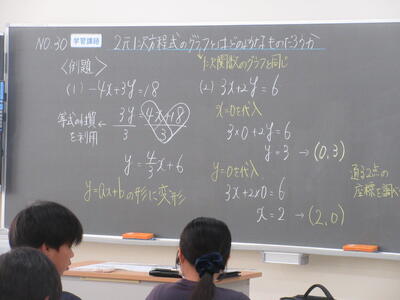 NO.30 学習課題 2元1次方程式のグラフとはどのようなものだろうか
1次関数のグラフと同じ
<例題>
(1) -4x+3y=18
等式の性質を利用 ← 3y/3 = 4x+18/3
y = 4/3 x + 6
y=ax+bの形に変形
(2) 3x+2y=6
x=0を代入
3×0+2y=6
y=3 → (0,3)
y=0を代入
3x+2×0=6
x=2 → (2,0)
通る2点の
座標を調べ